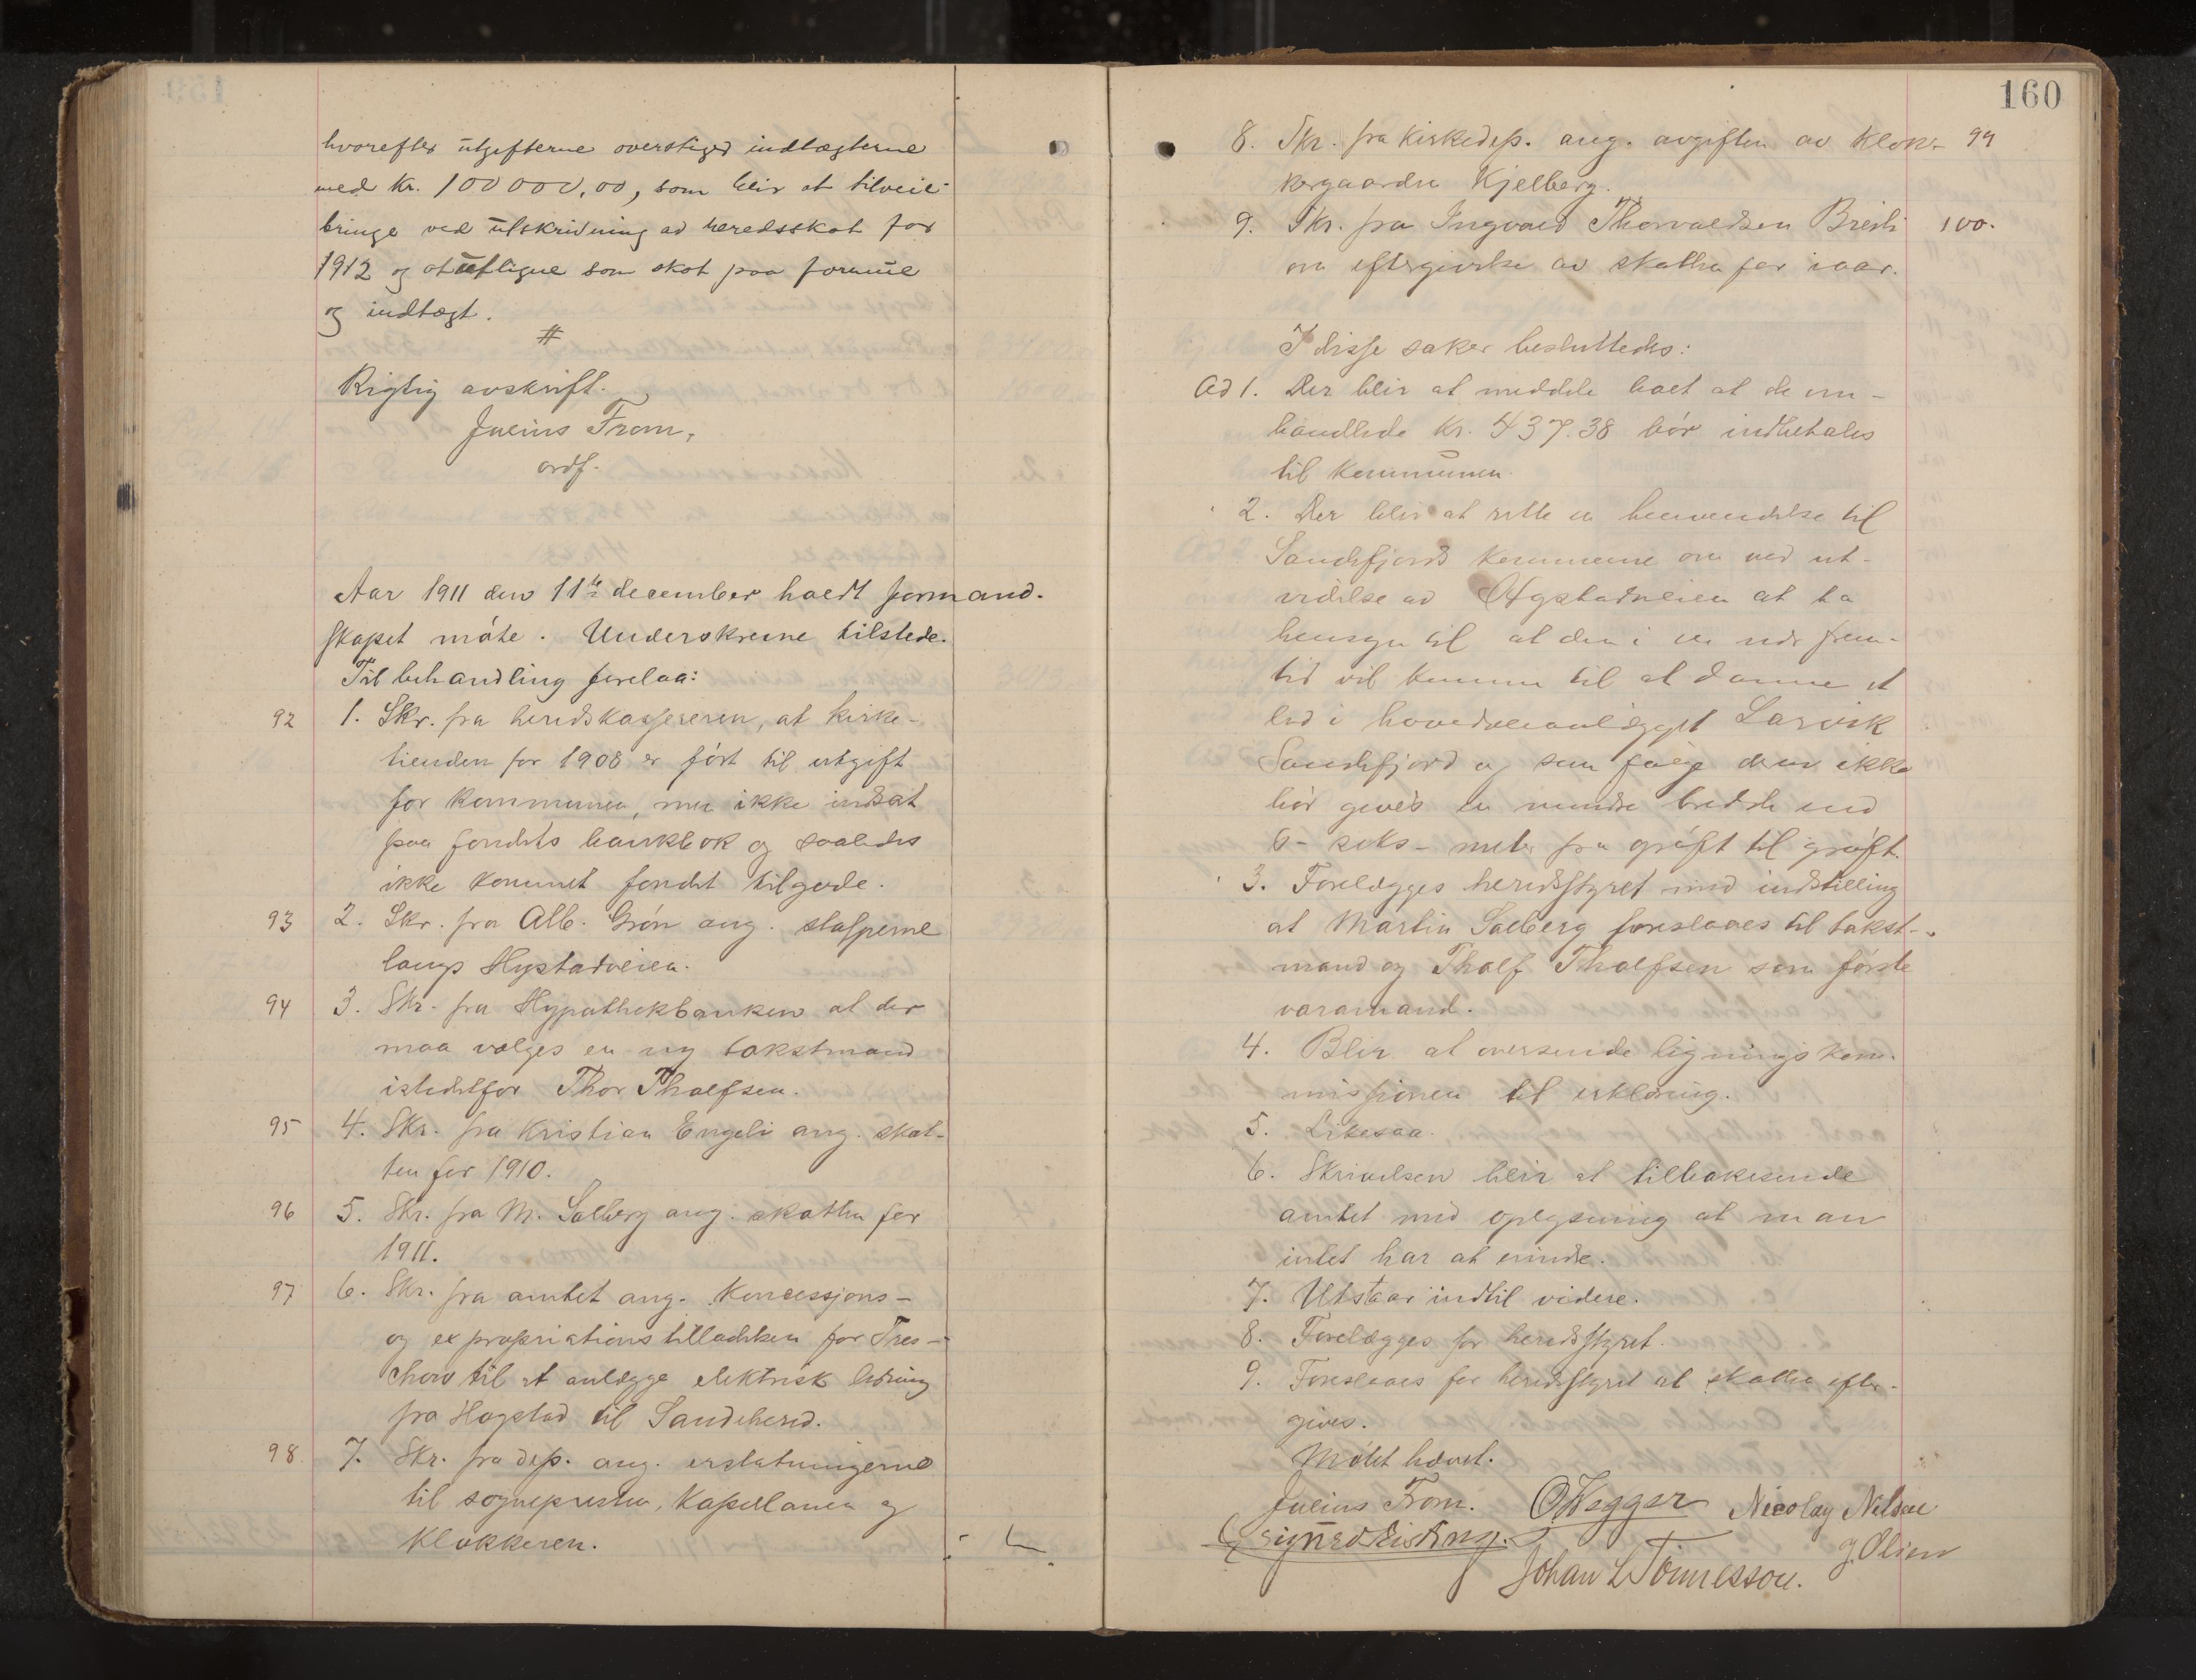 hvorefter utgifterne overstiger indtægterne
med Kr. 100 000,00, som blir at tilveie-
bringe ved utskrivning av heredsskat for
1912 og at utligne som skat paa formue
og indtægt.
#
Rigtig avskrift.
Julius From,
ordf.
Aar 1911 den 11te december holdt formand-
skapet møte. Underskrevne tilstede.
Til behandling forelaa:
92 1. Skr. fra heredskassereren, at kirke-
tienden for 1908 er ført til utgift
for kommunen, men ikke indsat
paa fondets bankbok og saaledes
ikke kommet fondet tilgode.
93 2. Skr. fra Alb. Grøn ang. stolperne
langs Hystadveien.
94 3. Skr. fra Hypothekbanken at der
maa vælges en ny takstmand
istedetfor Thor Tholfsen.
95 4. Skr. fra Kristian Engeli ang. skat-
ten for 1910.
96 5. Skr. fra M. Solberg ang. skatten for
1911.
97 6. Skr. fra amtet ang. Koncessjons-
og expropriationstilladelsen for Tres-
chow til at anlægge elektrisk ledning
fra Hogstad til Sandeherred.
98. 7. Skr. fra dep. ang. erstatningerne
til sognepresten, Kapellanen og
Klokkeren.
160
8. Skr. fra Kirkedep. ang. avgiften av Klok- 99
kergaarden Kjelberg.
9. Skr. fra Ingvald Thorvaldsen Breili 100.
om eftergivelse av skatten for iaar.
I disse saker besluttedes:
Ad 1. Der blir at meddele boet at de om-
handlede Kr. 437.38 bør indbetales
til Kommunen.
2. Der blir at rette en henvendelse til
Sandefjords Kommune om ved ut-
videlse av Hystadveien at ta
hensyn til at den i en nær frem-
tid vil komme til at danne et
led i hovedveianlægget Larvik
Sandefjord og som følge derav ikke
bør gives en mindre bredde end
6 - seks - meter fra grøft til grøft.
3. Forelægges heredsstyret med indstilling
at Martin Solberg foreslaaes til takst-
mand og Tholf Tholfsen som første
varamand.
4. Blir at oversende ligningskom-
missionen til erklæring.
5. Likesaa.
6. Skrivelsen blir at tilbakesende
amtet med oplysning at man
intet har at erindre.
7. Utstaar indtil videre.
8. Forelægges for heredsstyret.
9. Foreslaaes for heredsstyret at skatten efter-
gives.
Møtet hævet.
Julius From. O Wegger Nicolay Nilsen
J. Olsen
Johan L Tønnesson.